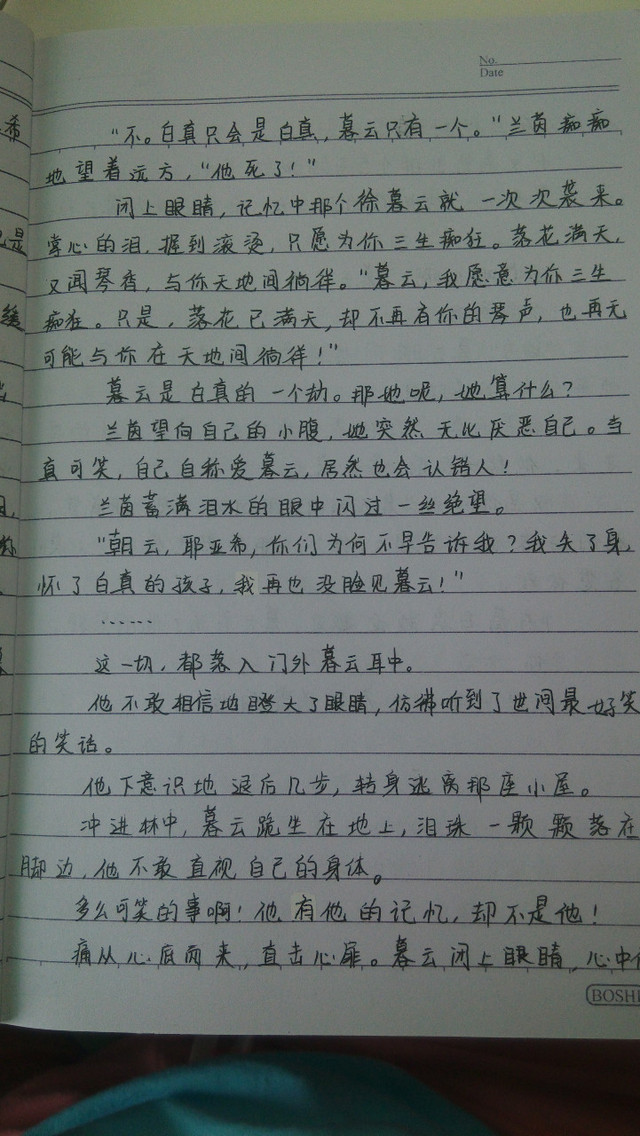 No.
Date
希
"不。白真只会是白真，暮云只有一个。"兰茵痴痴
地望着远方，"他死了！"
闭上眼睛，记忆中那个徐暮云就一次次袭来。
是
掌心的泪，握到滚烫，只愿为你三生痴狂。落花满天，
又闻琴香，与你天地间徜徉。"暮云，我愿意为你三生
缓
痴狂。只是，落花已满天，却不再有你的琴声，也再无
可能与你在天地间徜徉！"
暮云是白真的一个劫。那她呢，她算什么？
兰茵望向自己的小腹，她突然无比厌恶自己。当
真可笑，自己自称爱暮云，居然也会认错人！
兰茵蓄满泪水的眼中闪过一丝绝望。
"朝云，耶亚希，你们为何不早告诉我？我失了身，
怀了白真的孩子，我再也没脸见暮云！"
……
这一切，都落入门外暮云耳中。
他不敢相信地瞪大了眼睛，仿彿听到了世间最好笑
的笑话。
他下意识地退后几步，转身逃离那座小屋。
冲进林中，暮云跪坐在地上，泪珠一颗颗落在
脚边，他不敢直视自己的身体。
多么可笑的事啊！他有他的记忆，却不是他！
痛从心底而来，直击心扉。暮云闭上眼睛，心中
BOSHI